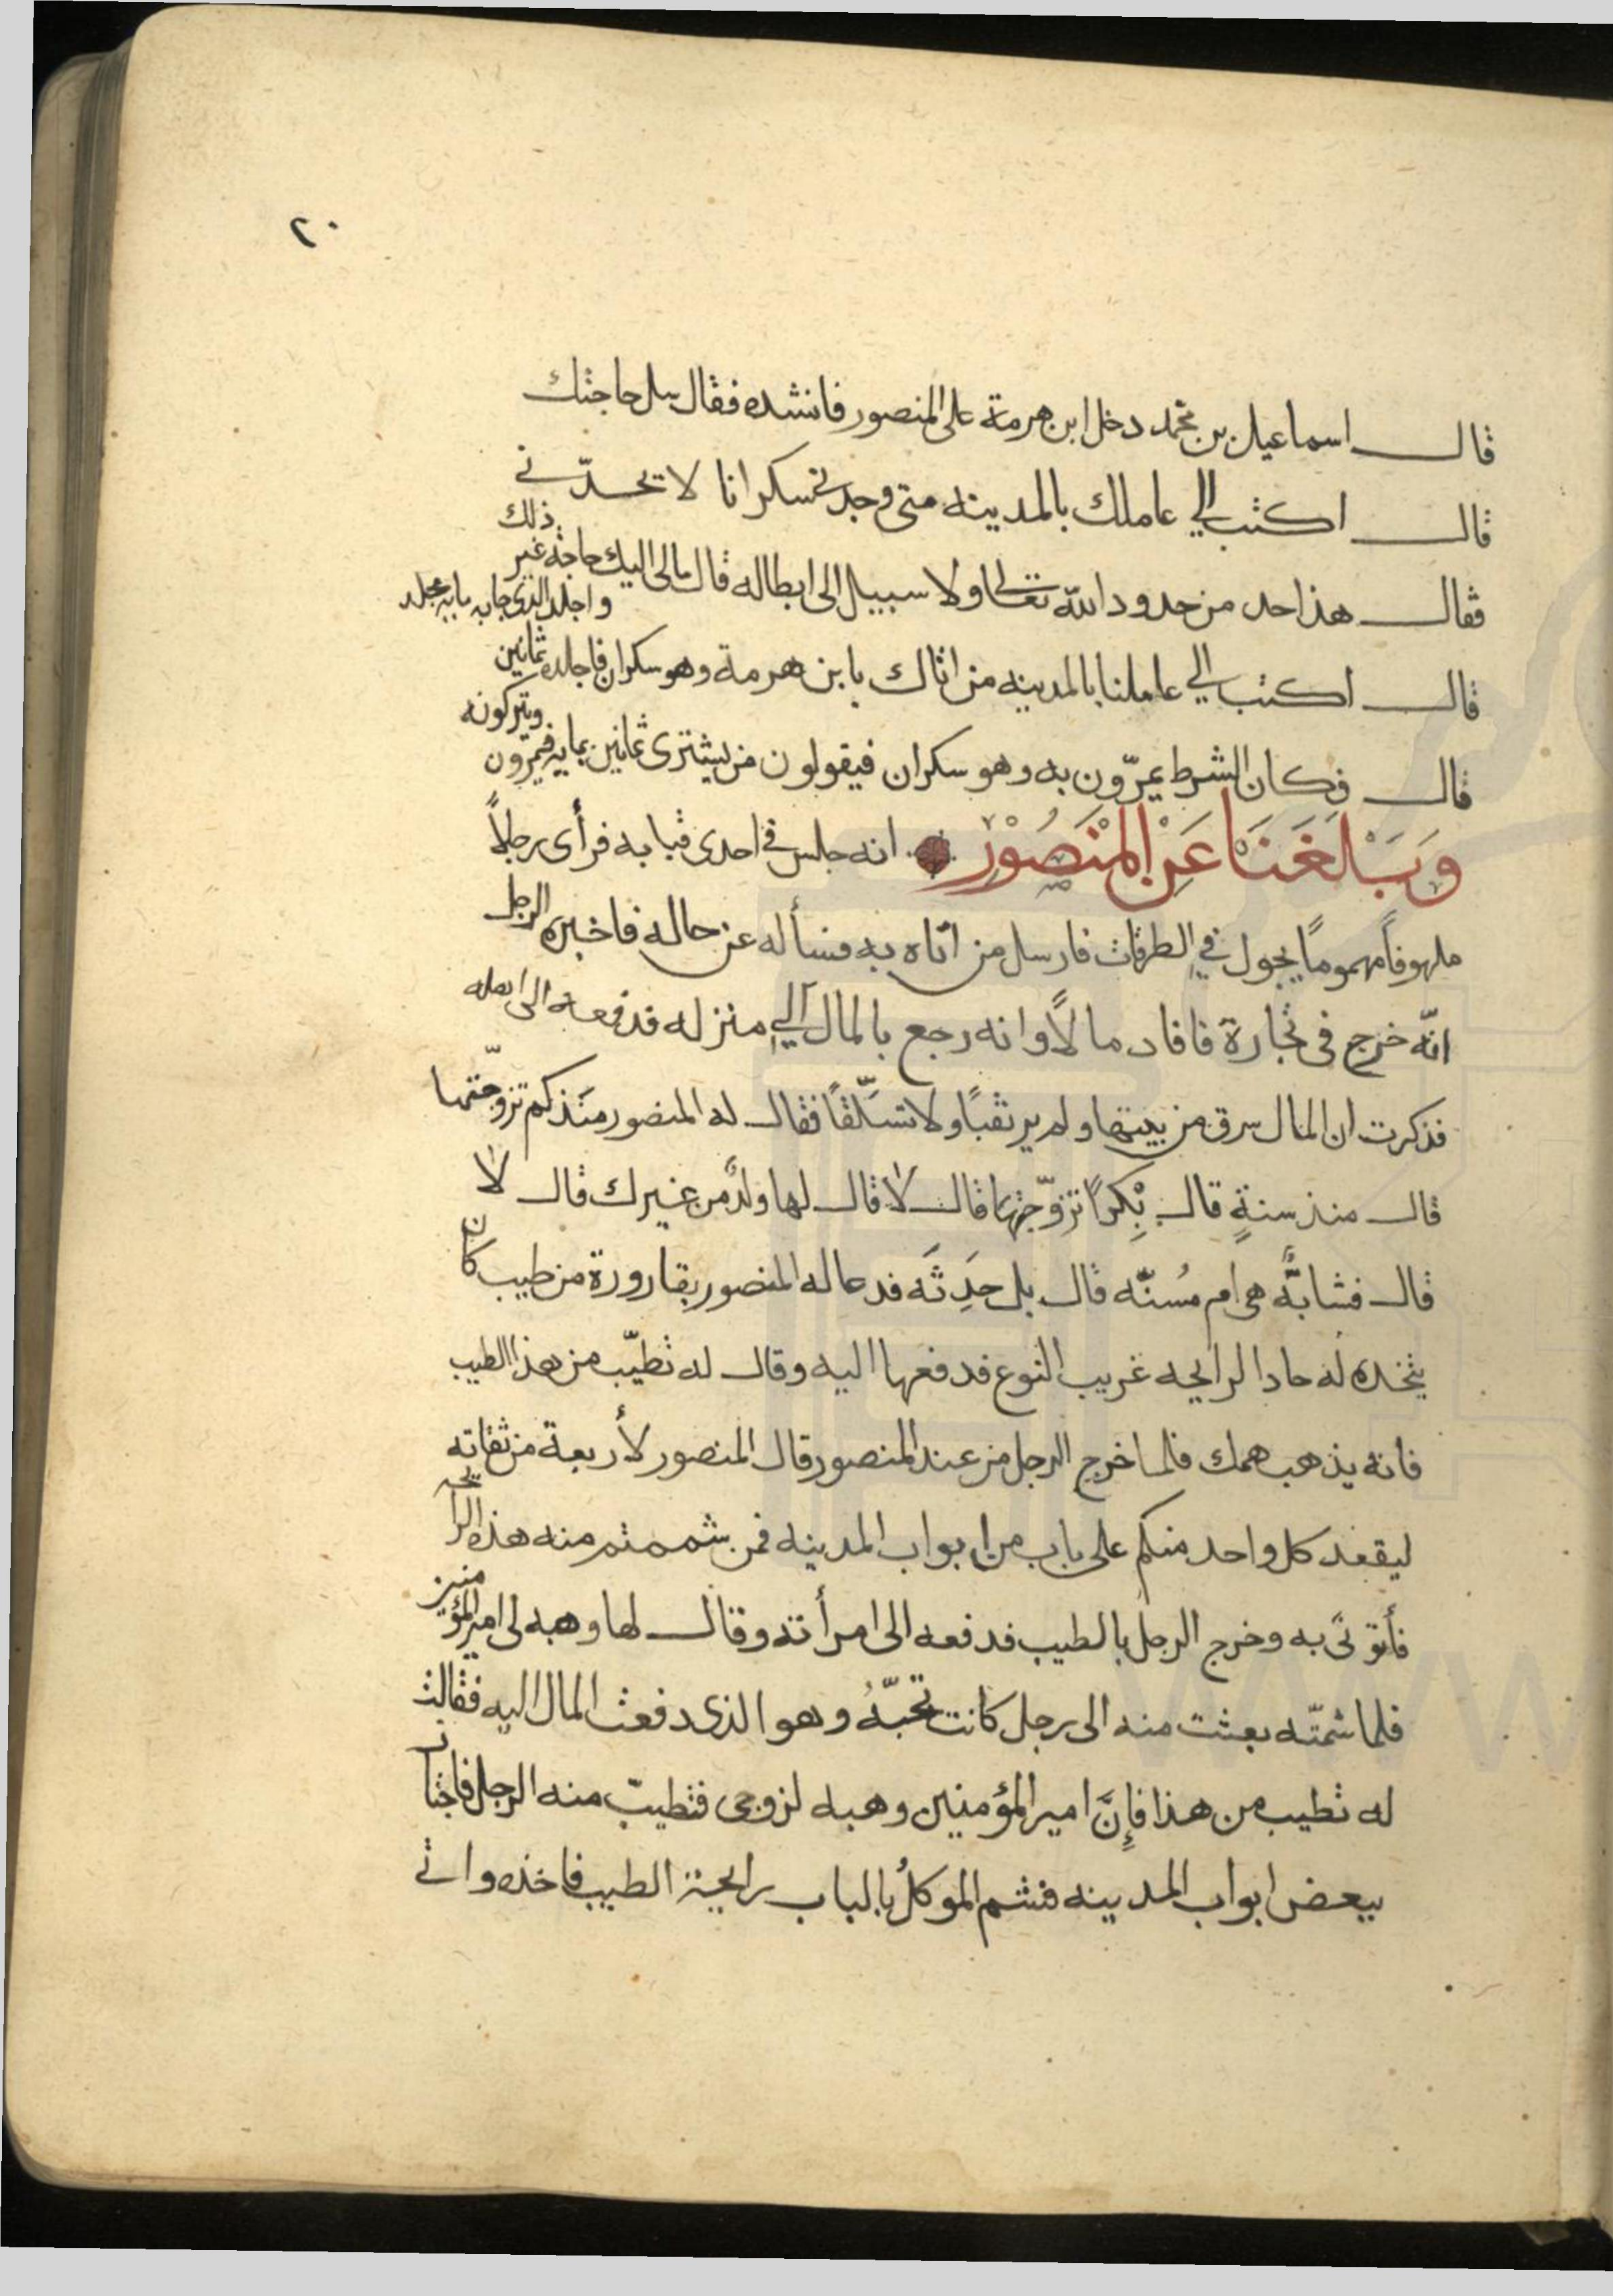 ٢٠
قال اسماعيل بن محمد دخل ابن هرمة على المنصور فانشده فقال سل حاجتك
قال اكتب الي عاملك بالمدينه متى وجدني سكرانا لا يحدّني
فقال هذا حد من حدود الله تعالى ولا سبيل الى ابطاله قال مالى اليك حاجة غير ذلك
قال اكتب الي عاملنا بالمدينه من اتاك بابن هرمة وهو سكران فاجلده ثمانين واجلد الذى جابه مايه جلد
قال فكان الشرط يمرّون به وهو سكران فيقولون من يشترى ثمانين بمايه فيمرون ويتركونه
وَبَلَغَنَا عَنِ المَنْصُوْرْ انه جلس في احدى قبابه فرأى رجلاً
ملهوفاً مهموماً يجول في الطرقات فارسل من اتاه به فسأله عن حاله فاخبره الرجل
انّه خرج فى تجارة فافاد مالاً وانه رجع بالمال الي منزله فدفعه الى اهله
فذكرت ان المال سرق من بيتها ولم ير نقباً ولا تسلّقاً فقال له المنصور منذ كم تزوّجتها
قال منذ سنةٍ قال بِكراً تزوّجتها قال لا قال لها ولدٌ من غيرك قال لا
قال فشابةٌ هى ام مُسنّه قال بل حَدِثَه فدعا له المنصور بقارورة من طيب كان
يتخذه له حاد الرايحه غريب النوع فدفعها اليه وقال له تطيّب من هذا الطيب
فانه يذهب همك فلما خرج الرجل من عند المنصور قال المنصور لأربعة من ثقاته
ليقعد كل واحد منكم على باب من ابواب المدينه فمن شممتم منه هذه الرايحه
فأتونى به وخرج الرجل بالطيب فدفعه الى امرأته وقال لها وهبه لى امير المؤمنين
فلما شمتّه بعثت منه الى رجل كانت تحبّهُ وهو الذى دفعت المال اليه فقالت
له تطيب من هذا فإِنَّ امير المؤمنين وهبه لزوجى فتطيب منه الرجل فاجتاز
ببعض ابواب المدينه فشم الموكلُ بالباب رايحة الطيب فاخذه واتى